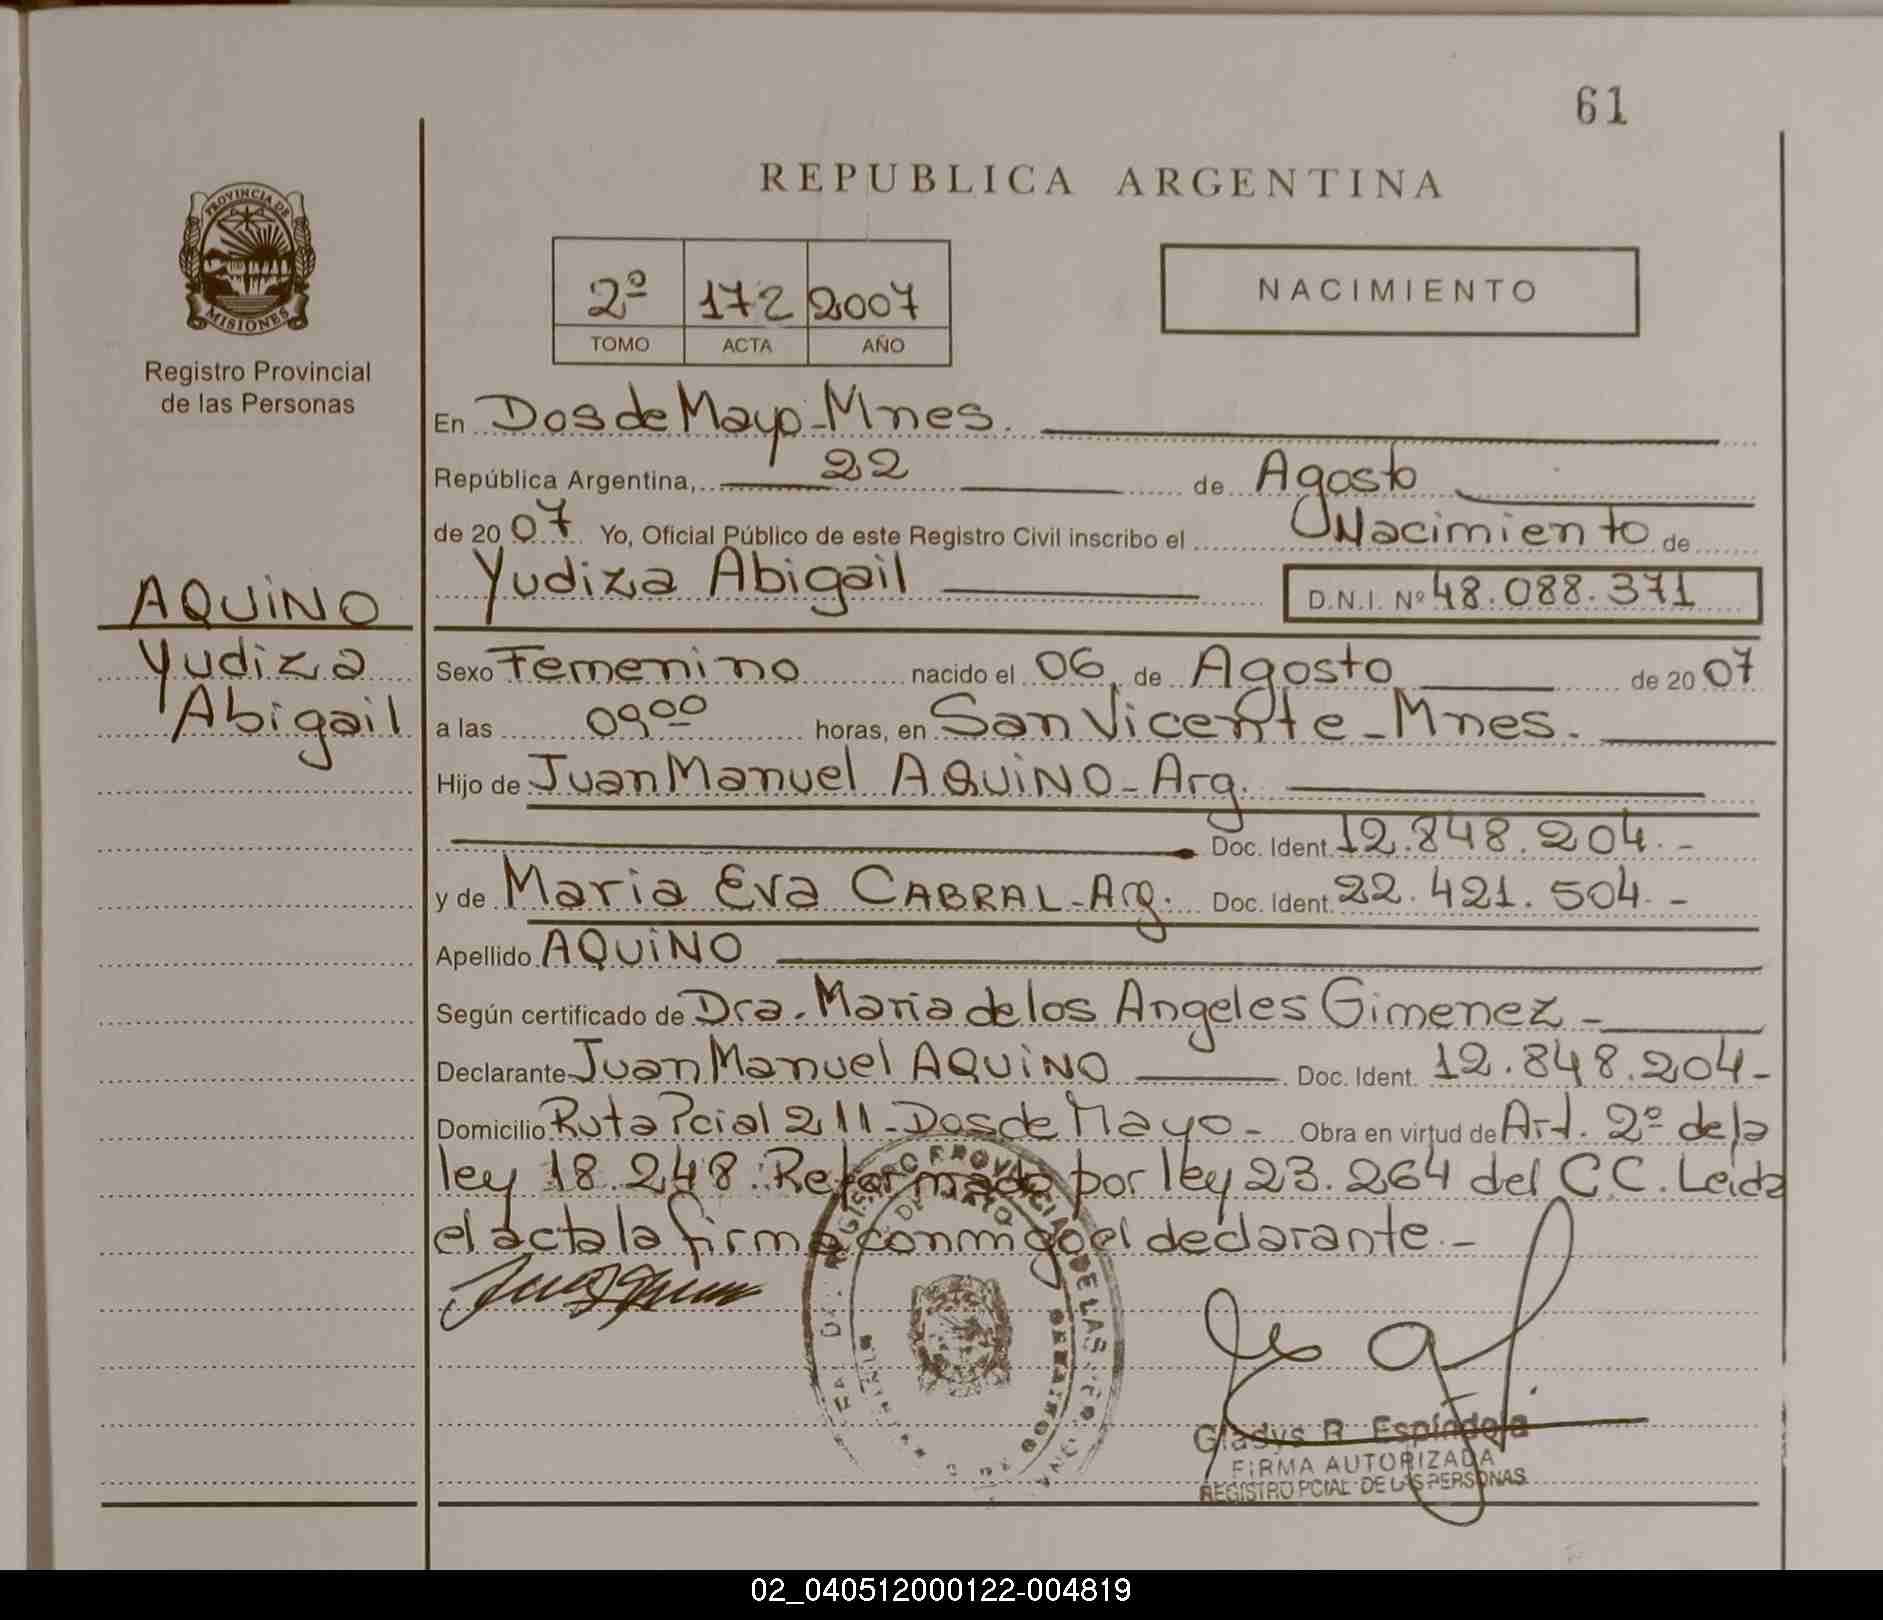 61
REPUBLICA ARGENTINA
PROVINCIA DE
MISIONES
Registro Provincial
de las Personas
2º 172 2007
TOMO ACTA AÑO
NACIMIENTO
En Dos de Mayo - Mnes.
República Argentina, 22 de Agosto
de 2007 Yo, Oficial Público de este Registro Civil inscribo el Nacimiento de
Yudiza Abigail D.N.I. Nº 48.088.371
AQUINO
Yudiza
Abigail
Sexo Femenino nacido el 06 de Agosto de 2007
a las 09 00 horas, en San Vicente - Mnes.
Hijo de Juan Manuel AQUINO - Arg.
Doc. Ident. 12.848.204.-
y de Maria Eva CABRAL - Arg. Doc. Ident. 22.421.504.-
Apellido AQUINO
Según certificado de Dra. Maria de los Angeles Gimenez -
Declarante Juan Manuel AQUINO Doc. Ident. 12.848.204-
Domicilio Ruta Pcial 211 - Dos de Mayo - Obra en virtud de Art. 2º de la
ley 18.248. Reformado por ley 23.264 del C C. Leida
el acta la firma conmigo el declarante. -
Gladys R. Espíndola
FIRMA AUTORIZADA
REGISTRO PCIAL DE LAS PERSONAS
02_040512000122-004819